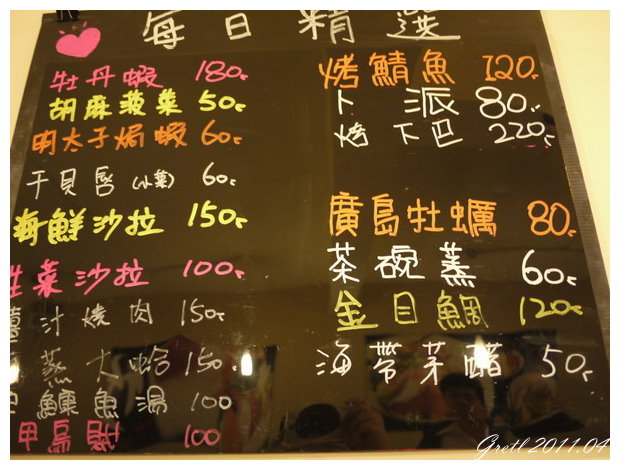 每日精選
牡丹蝦 180.
胡麻菠菜 50.
明太子焗蝦 60.
干貝唇(小菜) 60.
海鮮沙拉 150.
生菜沙拉 100.
汁燒肉 150.
蒸大蛤 150.
鱸魚湯 100
甲烏 100
烤鯖魚 120.
卜派 80.
烤下巴 220.
廣島牡蠣 80.
茶碗蒸 60.
金目鯛 120.
海帶芽醋 50.
Gretl 2011.04